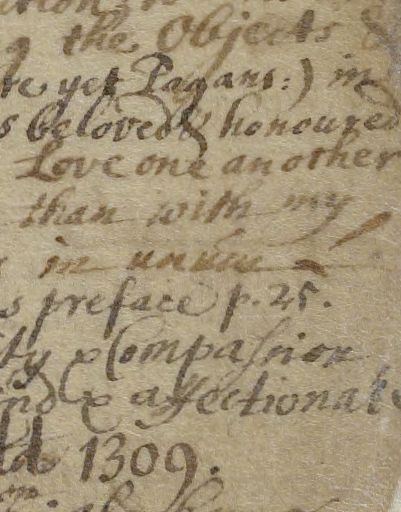 g the Objects &
re yet Pagans:) in
s beloved & honoured
Love one another
than with my
in unum
s preface p. 25.
ity & Compassion
ind & affectionat
1309.